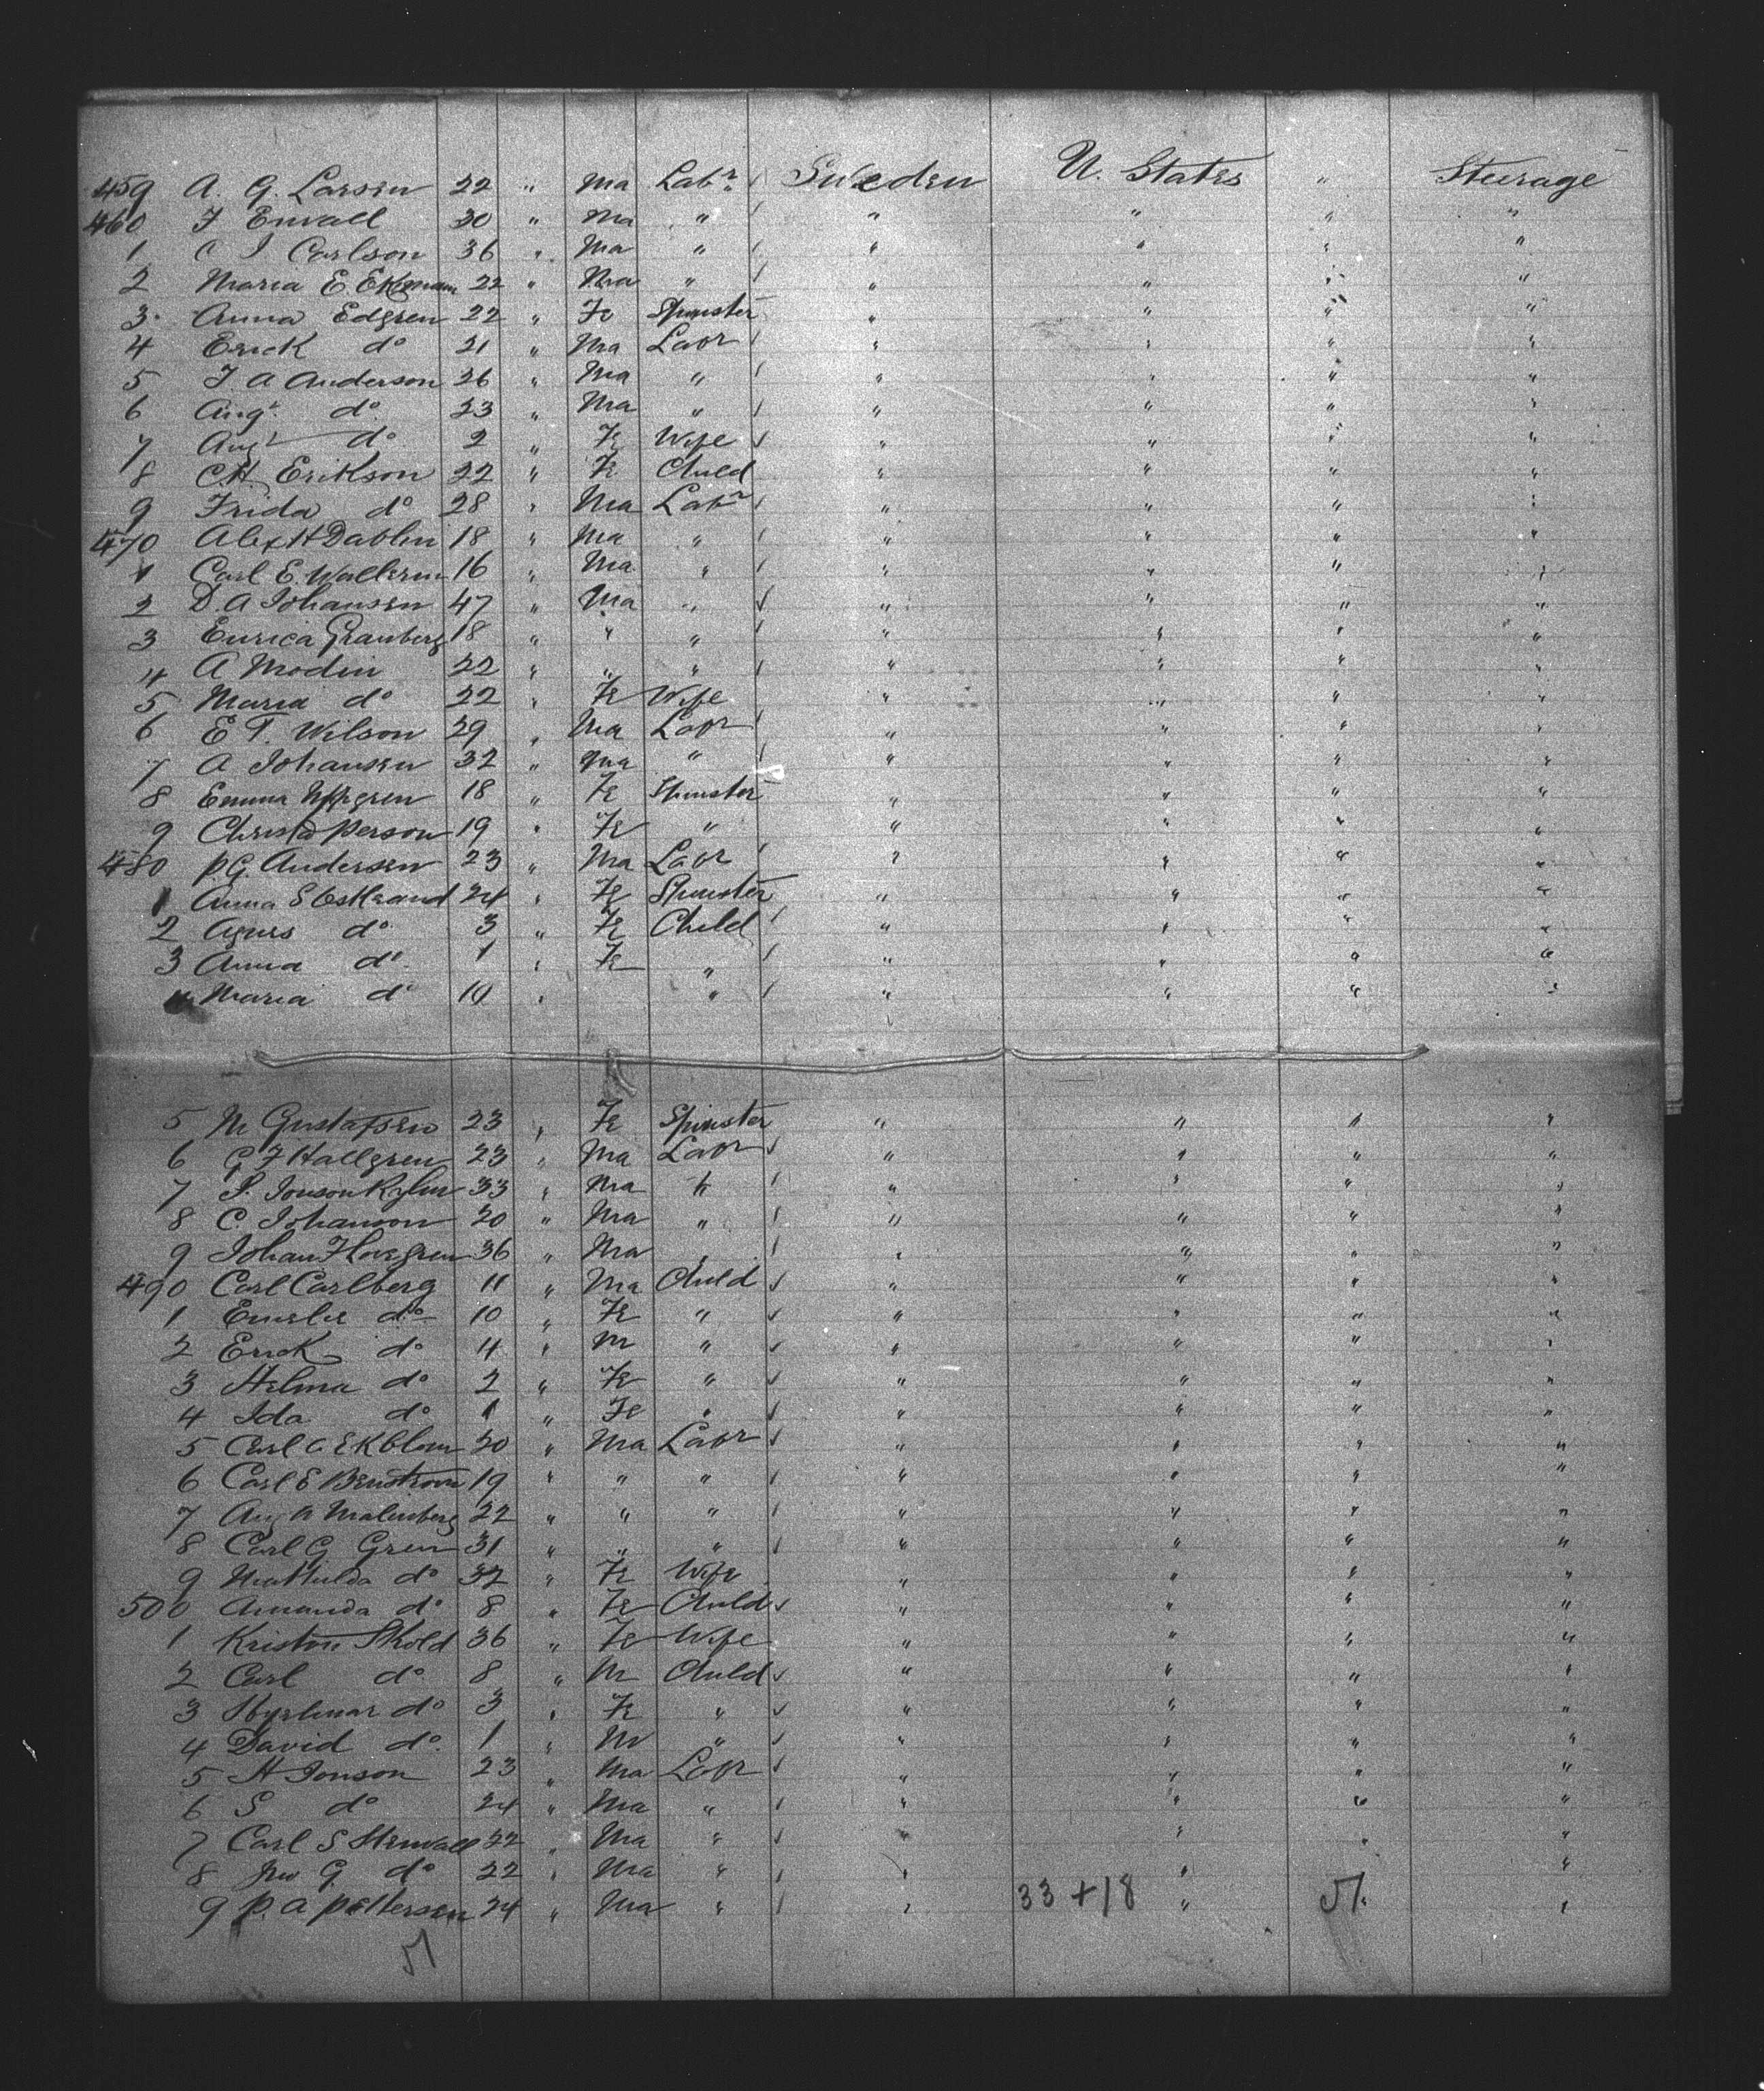 459 A. G. Larsen 22 " Ma Labr. Sweden U. States " Steerage
460 F Envall 30 " Ma " " " " "
1 C J Carlson 36 " Ma " " " " "
2 Maria E. Ekman 22 " Ma " " " " "
3 Anna Edgren 22 " Fe Spinster " " " "
4 Erick do 21 " Ma Labr " " " "
5 J A Anderson 26 " Ma " " " " "
6 Augt. do 23 " Ma " " " " "
7 Augt do 2 " Fe Wife " " " "
8 C.H. Erikson 22 " Fe Child " " " "
9 Frida do 28 " Ma Labr " " " "
470 Alex H Dahlin 18 " Ma " " " " "
1 Carl E. 16 " Ma " " " " "
2 D. A Johansen 47 " Ma " " " " "
3 Granberg 18 " " " " " " "
4 A Modin 22 " " " " " " "
5 Maria do 22 " Fe Wife " " " "
6 E F. Wilson 29 " Ma Labr " " " "
7 A Johansen 32 " Ma " " " " "
8 Emma 18 " Fe Spinster " " " "
9 Person 19 " Fe " " " " "
480 P G. Andersen 23 " Ma Labr " " " "
1 Anna S Ostrand 24 " Fe Spinster " " " "
2 Agnes do 3 " Fe Child " " " "
3 Anna do 1 " Fe " " " " "
4 Maria do 10 " " " " " "
5 M Gustafsen 23 " Fe Spinster " " " "
6 G F Hallgren 23 " Ma Labr " " " "
7 Jonson Rylin 33 " Ma " " " " "
8 C. Johanson 20 " Ma " " " " "
9 Johan 36 " Ma " " " " "
490 Carl Carlberg 11 " Ma Child " " " "
1 Emelie do 10 " Fe " " " " "
2 Erick do 4 " M " " " " "
3 Helma do 2 " Fe " " " " "
4 Ida do 1 " Fe " " " " "
5 Carl C Ekblom 20 " Ma Labr " " " "
6 Carl E 19 " " " " " " "
7 Aug A Malmberg 22 " " " " " " "
8 Carl G Gren 31 " " " " " " "
9 Mathilda do 32 " Fe Wife " " " "
500 Amanda do 8 " Fe Child " " " "
1 Skold 36 " Fe Wife " " " "
2 Carl do 8 " M Child " " " "
3 Hjelmar do 3 " Fe " " " " "
4 David do 1 " M " " " " "
5 H Jonson 23 " Ma Labr " " " "
6 S do 24 " Ma " " " " "
7 Carl S Stenvall 22 " Ma " " " " "
8 G do 22 " Ma " " " " "
9 P. A Pettersen 24 " Ma " " 33 + 18 " 51 "
51